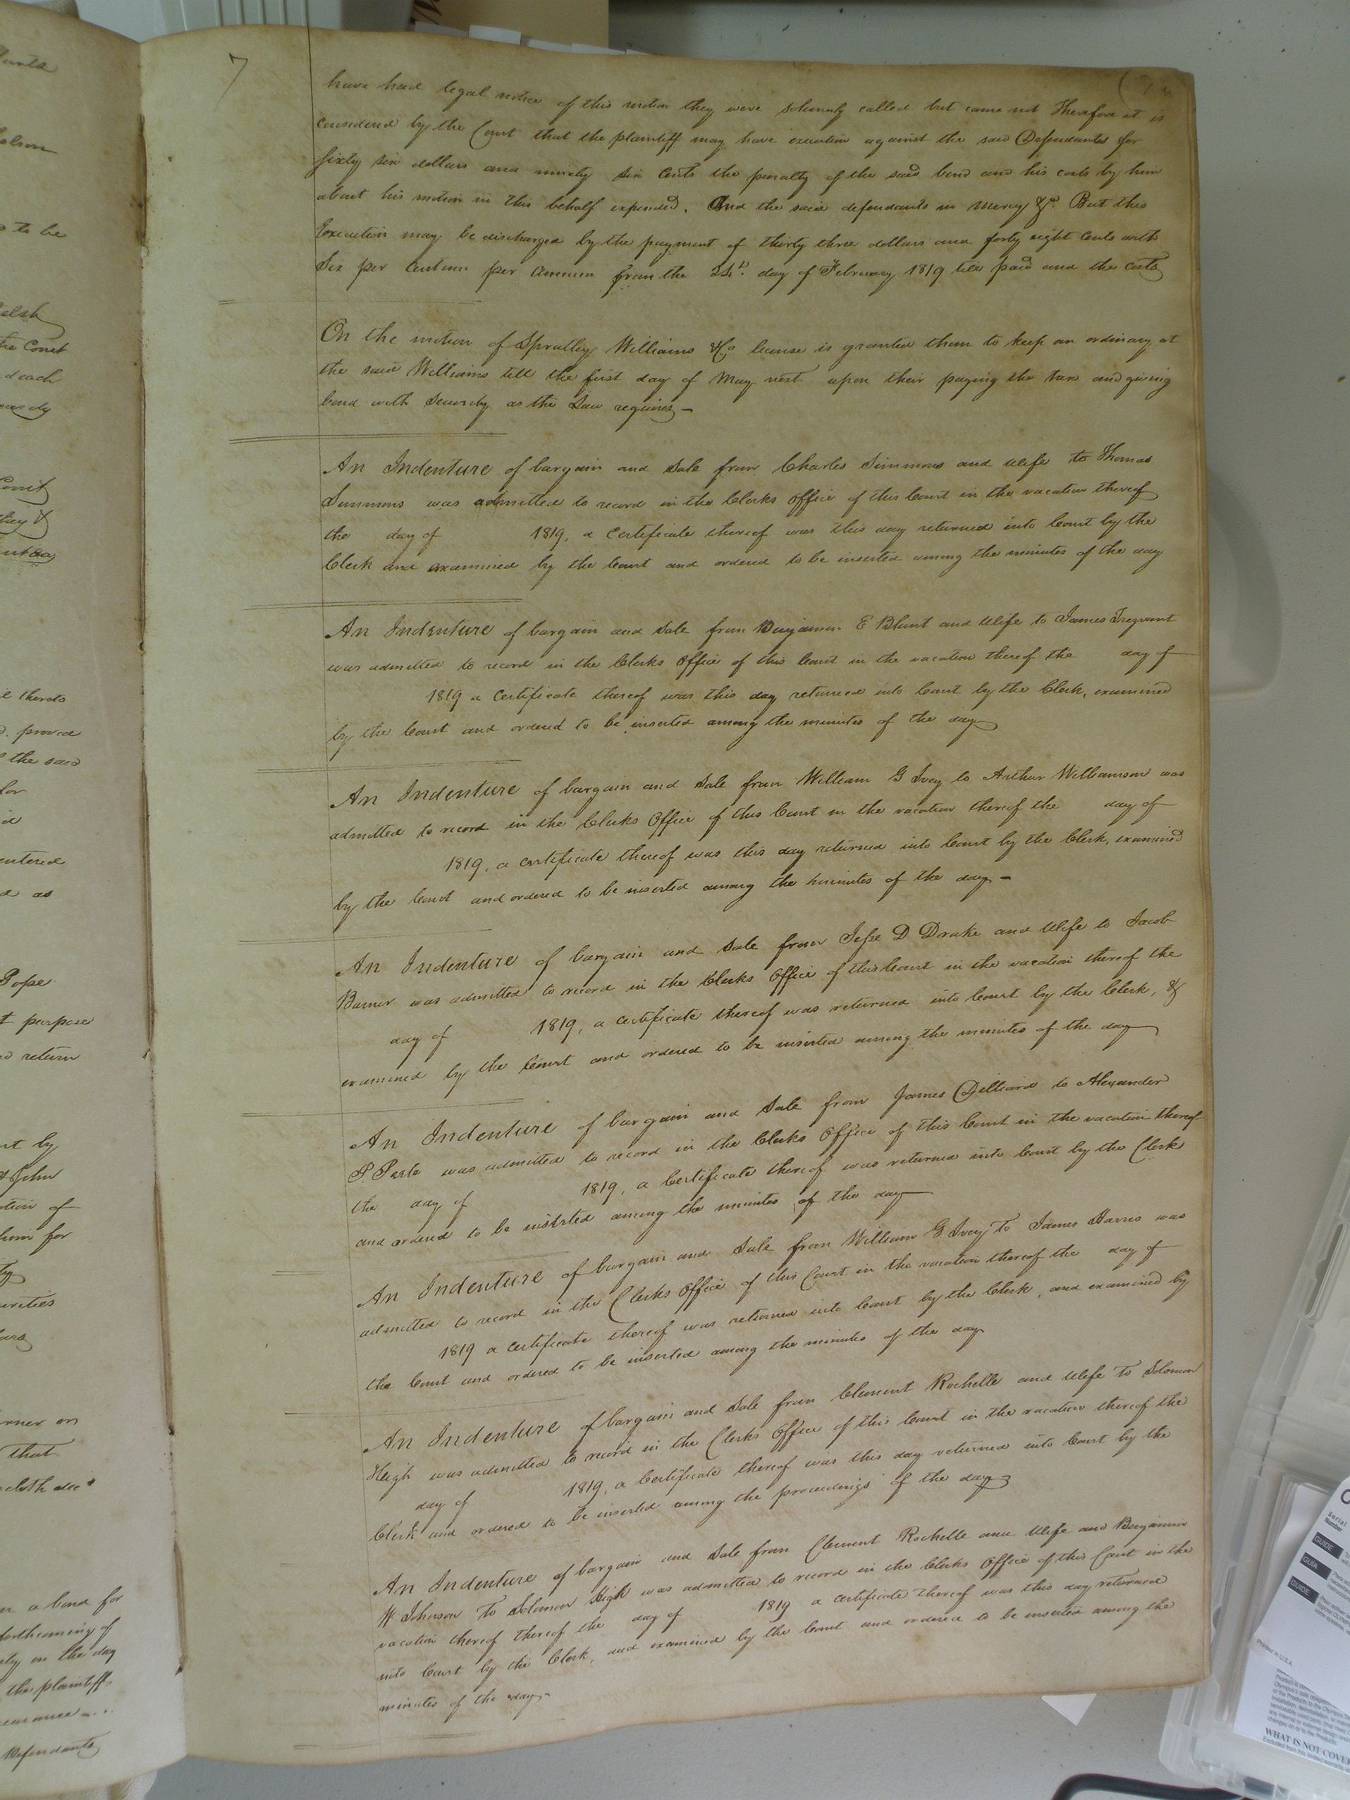 7
have had legal notice of this motion they were solemnly called but came not Therefore it is
considered by the Court that the plaintiff may have execution against the said Defendants for
Sixty six dollars and ninety six Cents the penalty of the said bond and his costs by him
about his motion in this behalf expended. And the said defendants in mercy &c. But this
Execution may be discharged by the payment of thirty three dollars and forty eight Cents with
Six per Centum per annum from the day of February 1819 till paid and the costs
On the motion of Spratley Williams & Co license is granted them to keep an ordinary at
the said Williams till the first day of May next upon their paying the tax and giving
bond with Security as the Law requires –
An Indenture of bargain and Sale from Charles Simmons and Wife to Thomas
Simmons was admitted to record in the Clerks Office of this Court in the vacation thereof
the day of 1819, a Certificate thereof was this day returned into Court by the
Clerk and examined by the Court and ordered to be inserted among the minutes of the day
An Indenture of bargain and Sale from Benjamin E Blunt and Wife to James Trezvant
was admitted to record in the Clerks Office of this Court in the vacation thereof the day of
1819 a Certificate thereof was this day returned into Court by the Clerk, examined
by the Court and ordered to be inserted among the minutes of the day
An Indenture of bargain and Sale from William G Ivey to Arthur Williamson was
admitted to record in the Clerks Office of this Court in the vacation thereof the day of
1819, a Certificate thereof was this day returned into Court by the Clerk, examined
by the Court and ordered to be inserted among the minutes of the day –
An Indenture of bargain and Sale from Jesse D Drake and Wife to Jacob
Barner was admitted to record in the Clerks Office of this Court in the vacation thereof the
day of 1819, a Certificate thereof was returned into Court by the Clerk, &
examined by the Court and ordered to be inserted among the minutes of the day
An Indenture of bargain and Sale from James Dilliard to Alexander
P was admitted to record in the Clerks Office of this Court in the vacation thereof
the day of 1819, a Certificate thereof was returned into Court by the Clerk
and ordered to be inserted among the minutes of the day
An Indenture of bargain and Sale from William G Ivey To James Harris was
admitted to record in the Clerks Office of this Court in the vacation thereof the day of
1819 a Certificate thereof was returned into Court by the Clerk, and examined by
the Court and ordered to be inserted among the minutes of the day
An Indenture of bargain and Sale from Clement Rochelle and Wife To Solomon
High was admitted to record in the Clerks Office of this Court in the vacation thereof the
day of 1819, a Certificate thereof was this day returned into Court by the
Clerk and ordered to be inserted among the proceedings of the day
An Indenture of bargain and Sale from Clement Rochelle and Wife and Benjamin
W Johnson To Solomon High was admitted to record in the Clerks Office of this Court in the
vacation thereof thereof the day of 1819 a certificate thereof was this day returned
into Court by the Clerk, and examined by the Court and ordered to be inserted among the
minutes of the day –
to be
the Court
the said
Pope
purpose
return
John
that
a bond for
forthcoming of
on the day
the plaintiff
Defendants
GUIDE
GUIA
GUIDE
WHAT IS NOT COVER